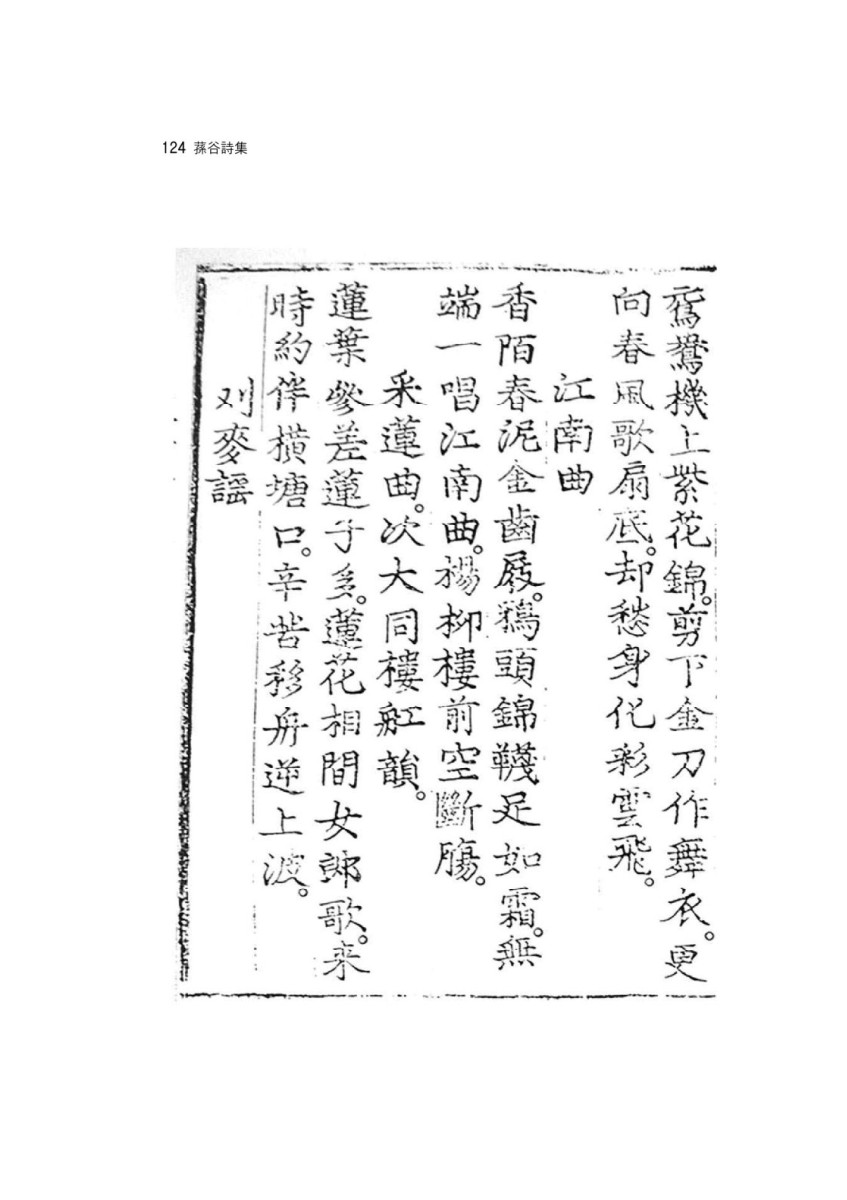 124 蓀谷詩集
鴛鴦機上紫花錦。剪下金刀作舞衣。更
向春風歌扇底。却愁身化彩雲飛。
江南曲
香陌春泥金齒屐。鴉頭錦韈足如霜。無
端一唱江南曲。楊柳樓前空斷膓。
采蓮曲。次大同樓舡韻。
蓮葉參差蓮子多。蓮花相間女郎歌。来
時約伴橫塘口。辛苦移舟逆上波。
刈麥謡